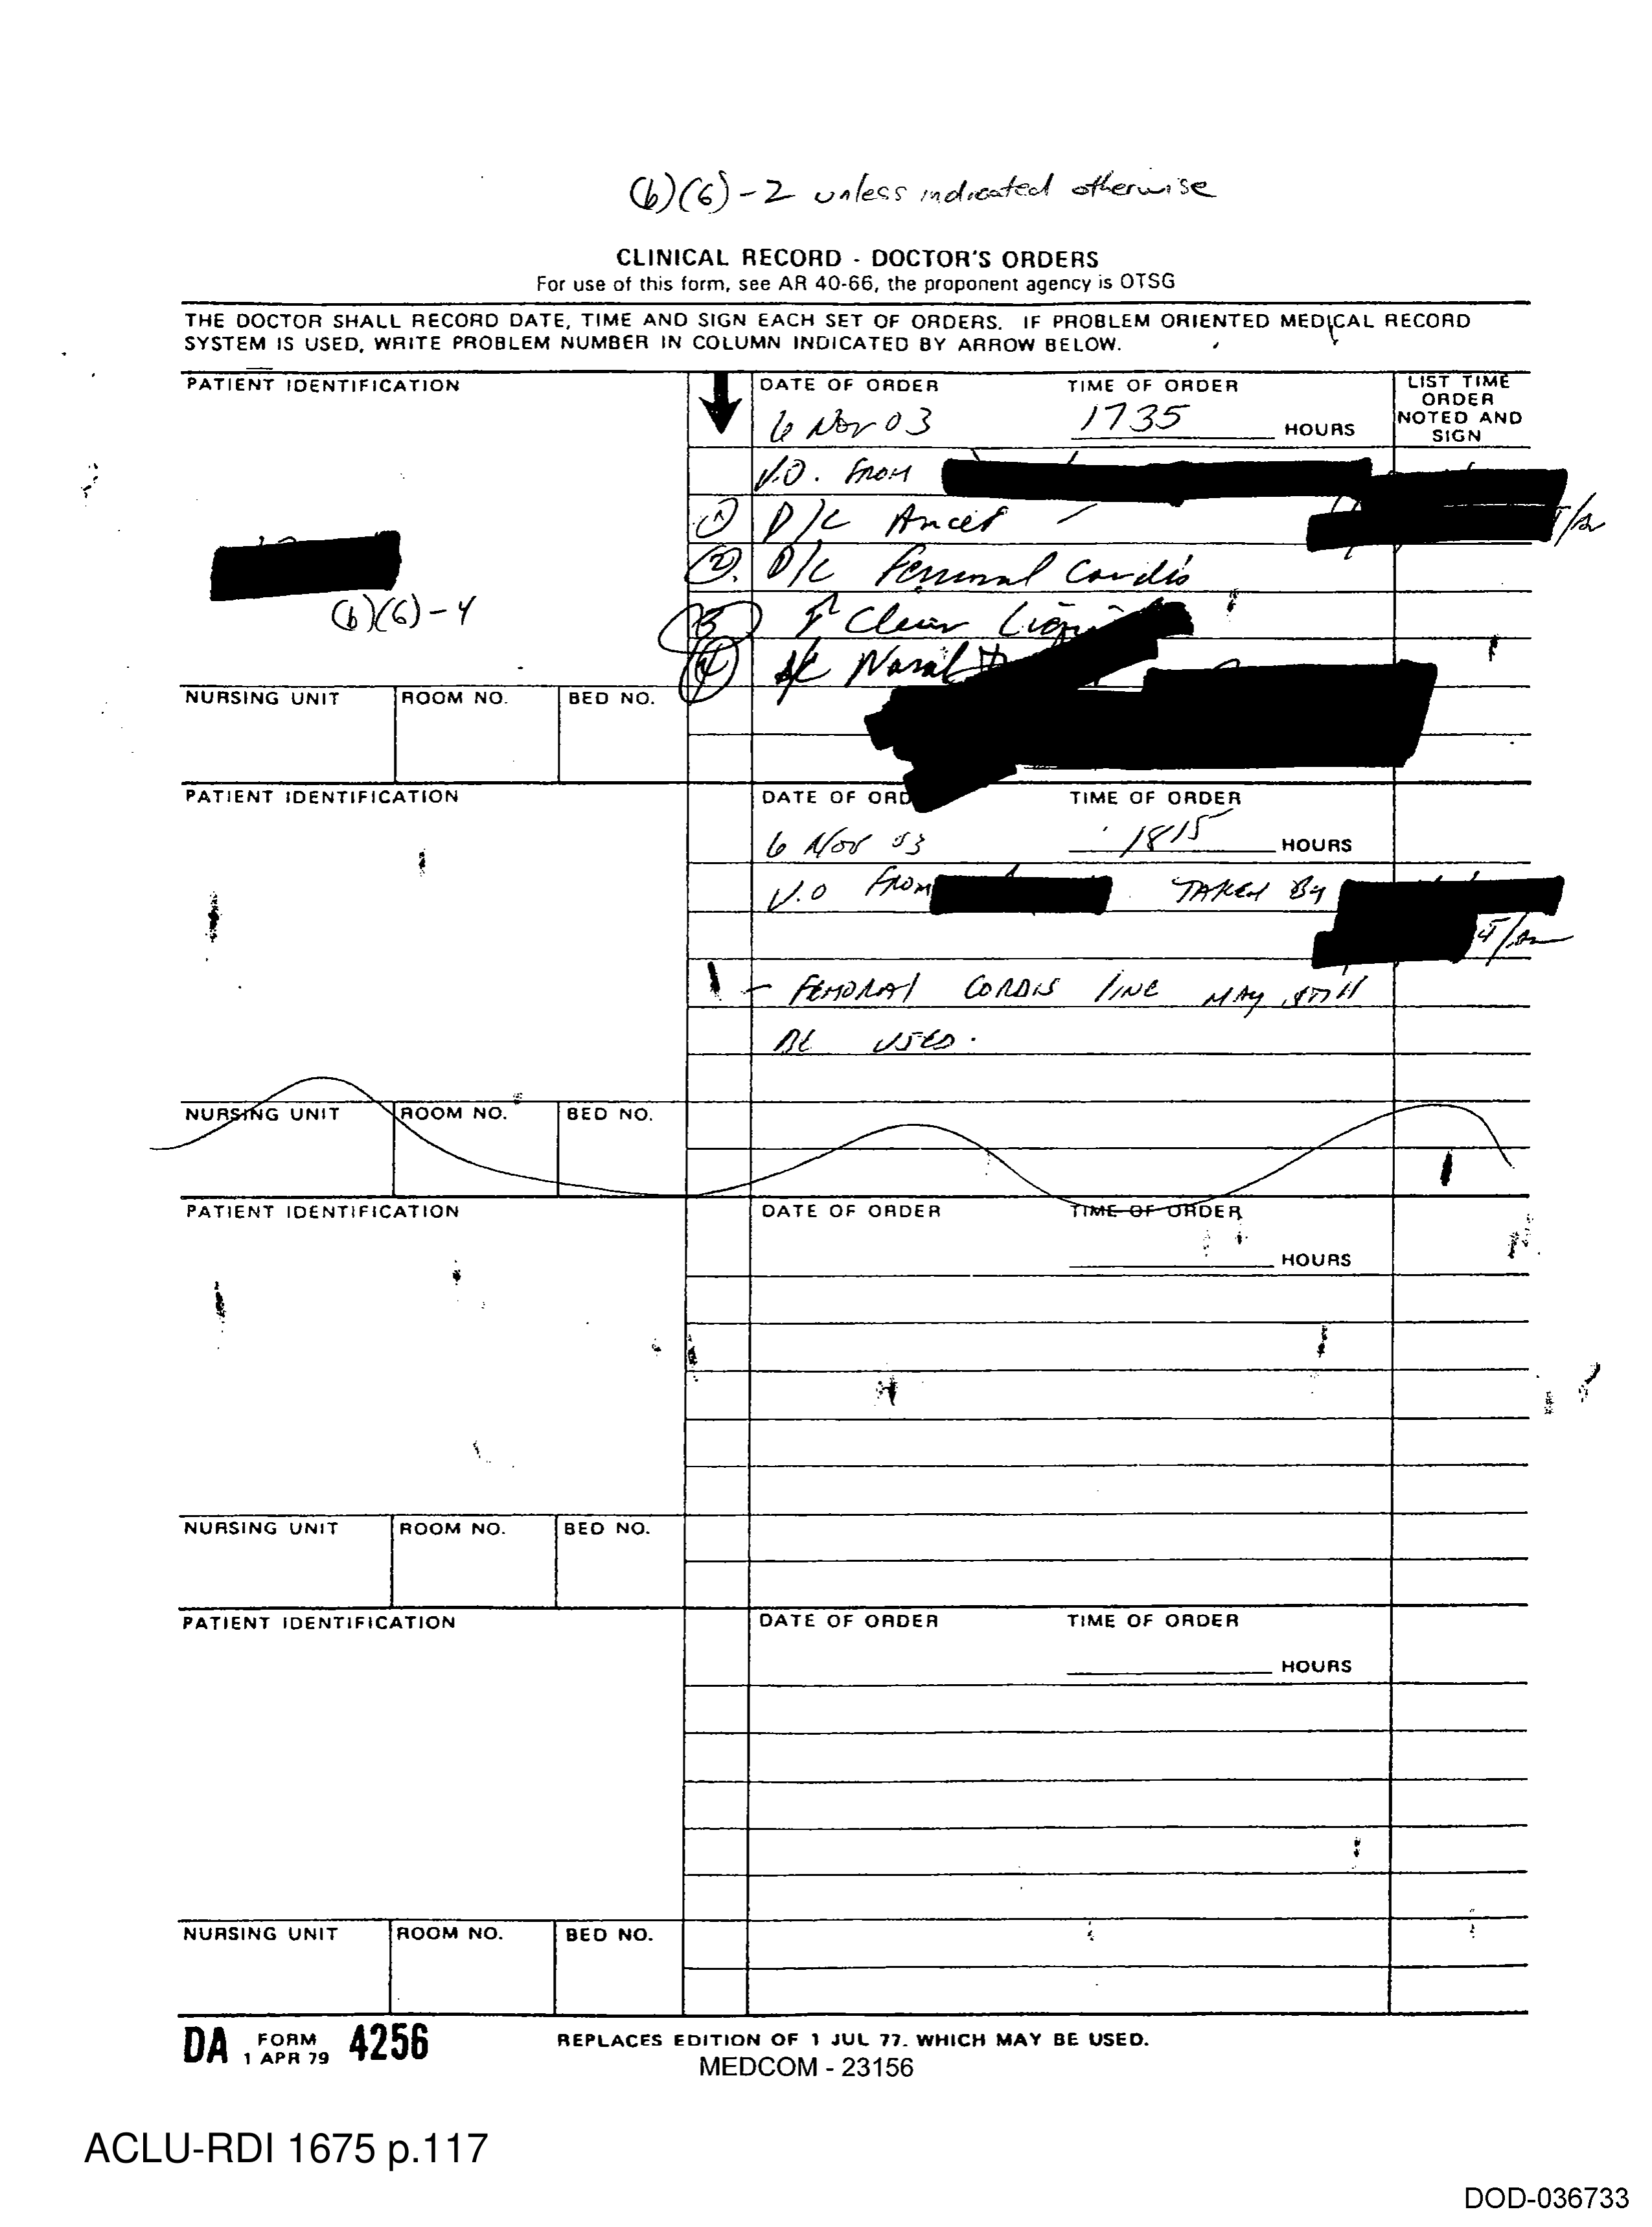 (b)(6)-2 unless indicated otherwise
CLINICAL RECORD - DOCTOR'S ORDERS
For use of this form, see AR 40-66, the proponent agency is OTSG
THE DOCTOR SHALL RECORD DATE, TIME AND SIGN EACH SET OF ORDERS. IF PROBLEM ORIENTED MEDICAL RECORD
SYSTEM IS USED, WRITE PROBLEM NUMBER IN COLUMN INDICATED BY ARROW BELOW.
PATIENT IDENTIFICATION
DATE OF ORDER TIME OF ORDER
LIST TIME ORDER NOTED AND SIGN
6 Nov 03 1735 HOURS
V.O. FROM
① D/C Ancef
②. D/C Femoral Cordis
(b)(6)-4
③ Clear
④ D/C Nasal
NURSING UNIT ROOM NO. BED NO.
PATIENT IDENTIFICATION
DATE OF ORD TIME OF ORDER
6 Nov 03 1815 HOURS
V.O FROM TAKEN By
- FEMORAL CORDIS LINE MAY STILL
BE USED.
NURSING UNIT ROOM NO. BED NO.
PATIENT IDENTIFICATION
DATE OF ORDER TIME OF ORDER
HOURS
NURSING UNIT ROOM NO. BED NO.
PATIENT IDENTIFICATION
DATE OF ORDER TIME OF ORDER
HOURS
NURSING UNIT ROOM NO. BED NO.
DA FORM 1 APR 79 4256
REPLACES EDITION OF 1 JUL 77. WHICH MAY BE USED.
MEDCOM - 23156
ACLU-RDI 1675 p.117
DOD-036733